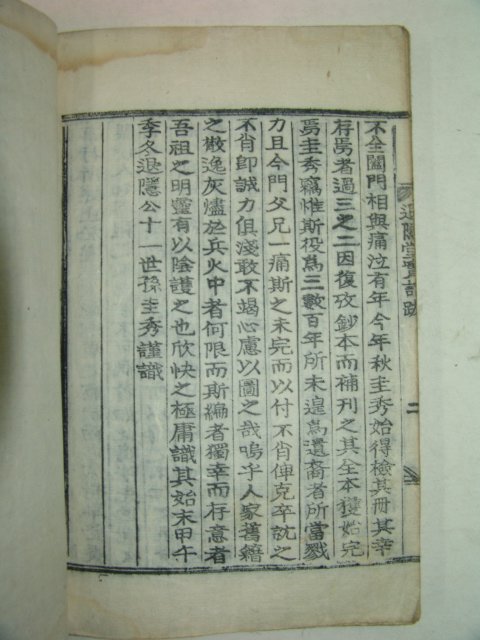 不全闔門相與痛泣有年今年秋圭秀始得檢其冊其幸
存焉者過三之二因復攷鈔本而補刊之其全本獲始完
焉圭秀竊惟斯役爲三數百年所未遑爲遺裔者所當戮
力且今門父兄一痛斯之未完而以付不肖俾克卒訖之
不肖卽誠力俱淺敢不竭心慮以圖之哉嗚乎人家舊籍
之散逸灰燼於兵火中者何限而斯編者獨幸而存意者
吾祖之明靈有以陰護之也欣快之極庸識其始末甲午
季冬退隱公十一世孫圭秀謹識
退隱堂實記跋
二